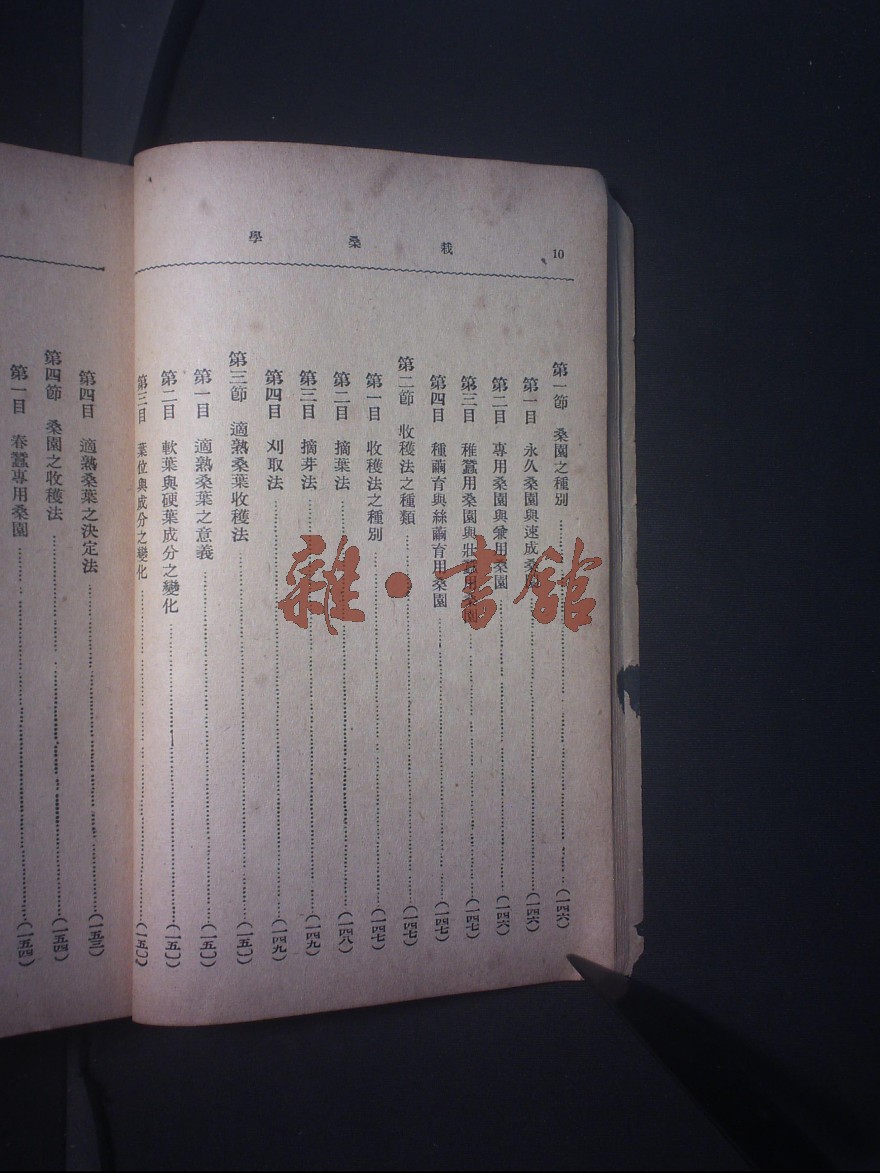 10
栽桑學
第一節 桑園之種別……(一四六)
第一目 永久桑園與速成桑園……(一四六)
第二目 專用桑園與兼用桑園……(一四六)
第三目 稚蠶用桑園與壯蠶用桑園……(一四七)
第四目 種繭育與絲繭育用桑園……(一四七)
第二節 收穫法之種類……(一四七)
第一目 收穫法之種別……(一四七)
第二目 摘葉法……(一四八)
第三目 摘芽法……(一四九)
第四目 刈取法……(一四九)
第三節 適熟桑葉收穫法……(一五〇)
第一目 適熟桑葉之意義……(一五〇)
第二目 軟葉與硬葉成分之變化……(一五〇)
第三目 葉位與成分之變化……(一五〇)
第四目 適熟桑葉之決定法……(一五三)
第四節 桑園之收穫法……(一五四)
第一目 春蠶專用桑園……(一五四)
雜·書館